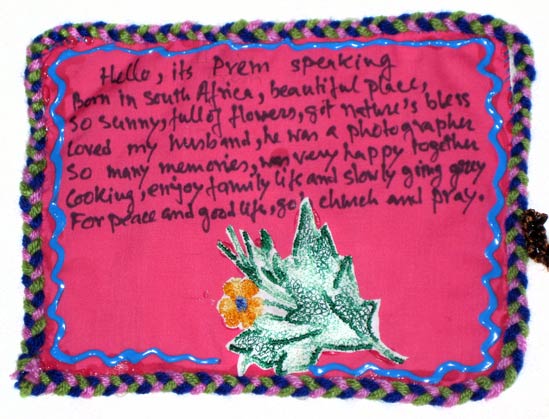 Hello, its Prem speaking
Born in South Africa, beautiful place,
so sunny, full of flowers, got nature's bless
Loved my husband, he was a photographer
So many memories, was very happy together
Cooking, enjoy family life and slowly going grey
For peace and good life, go church and pray.